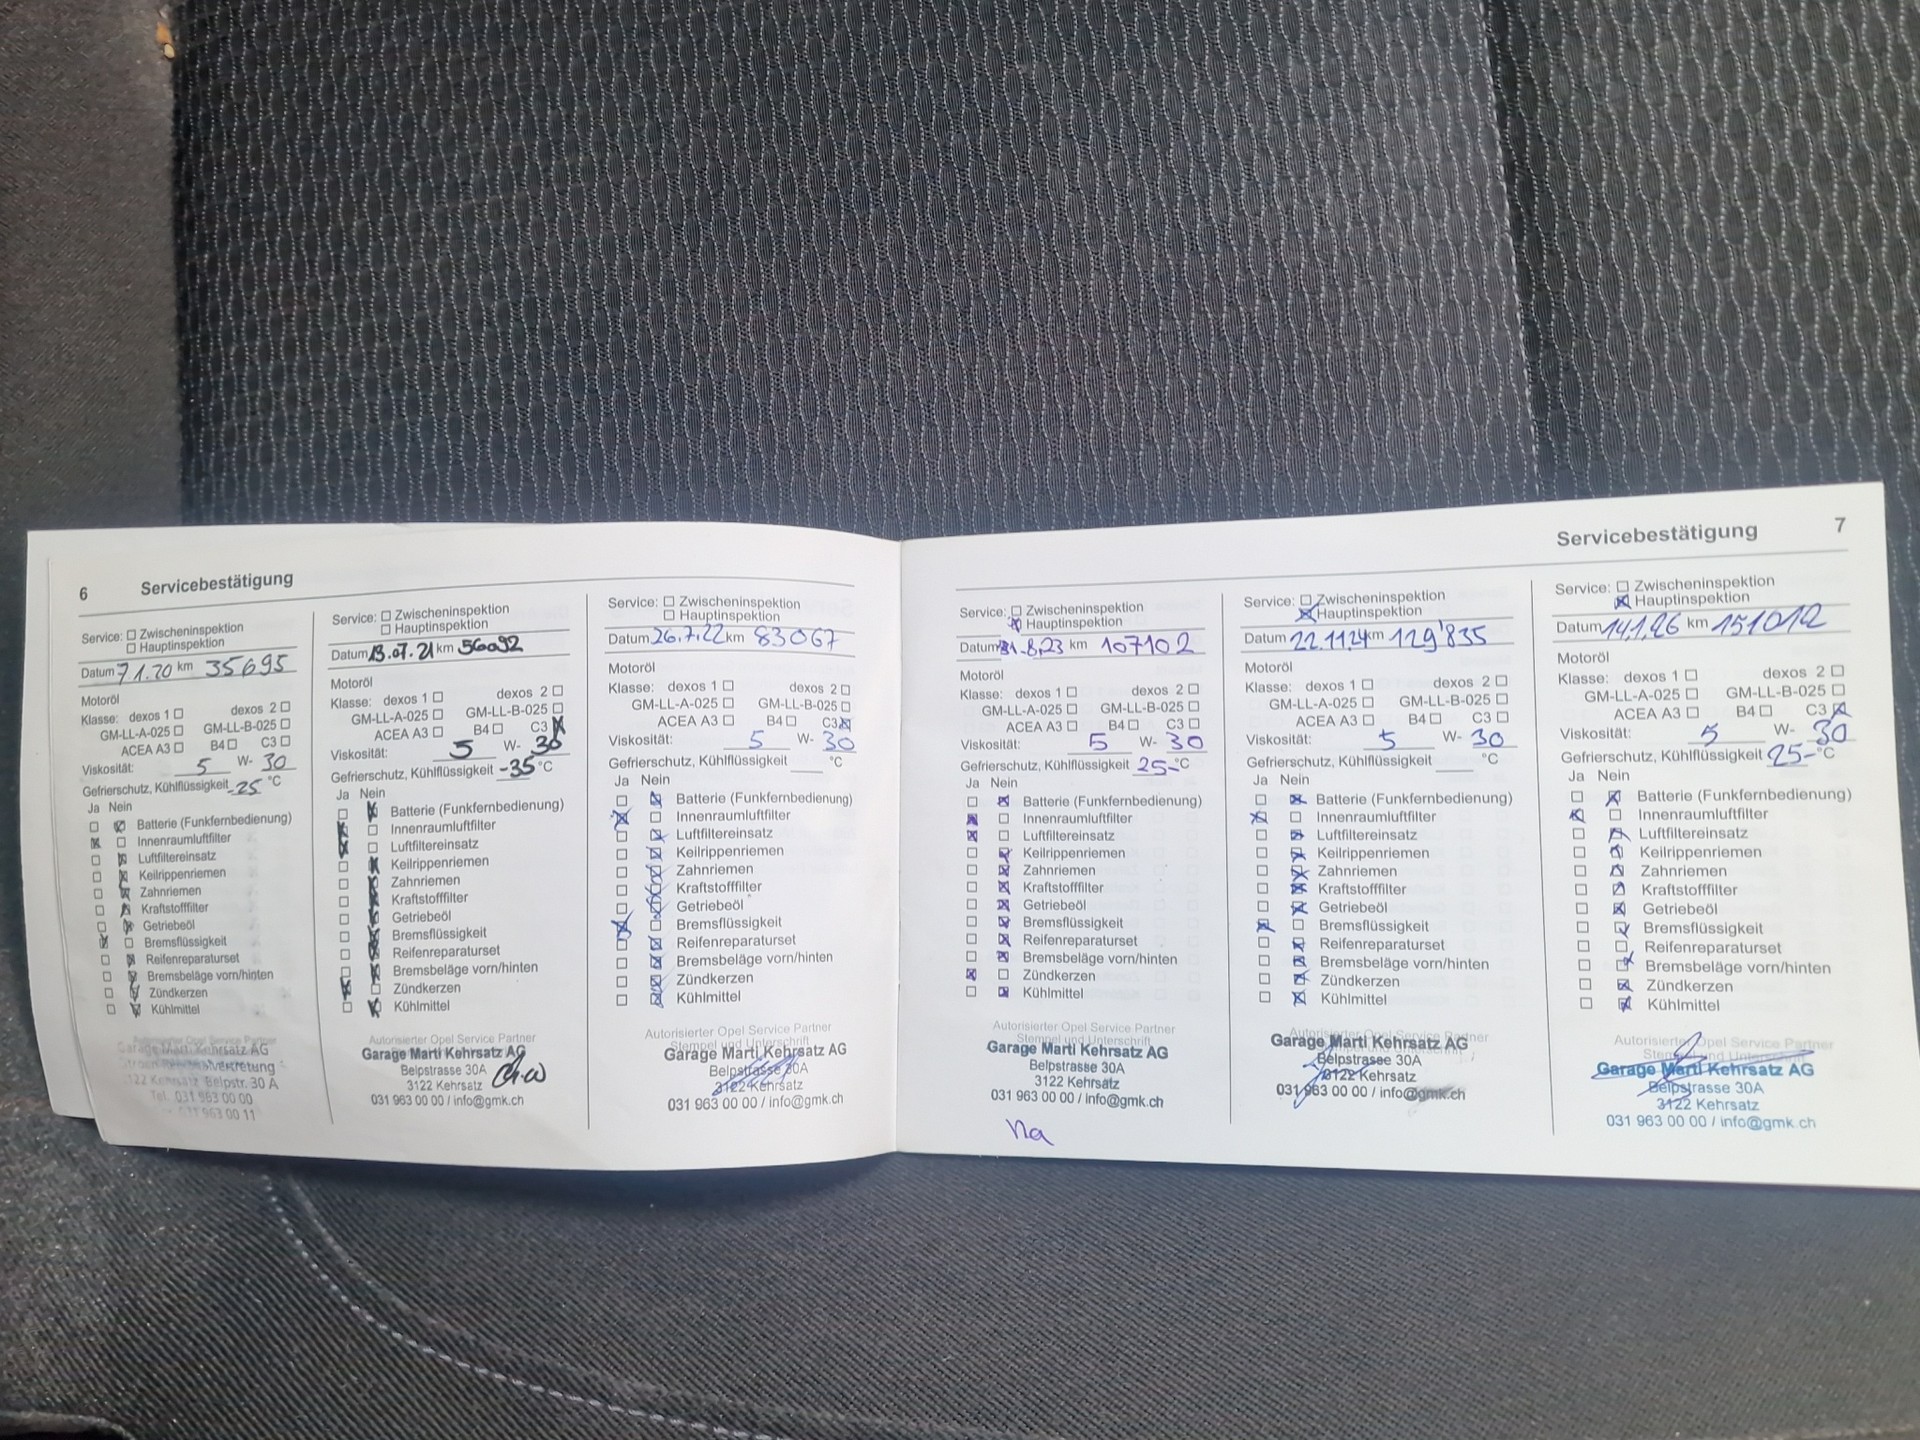 6 Servicebestätigung
Service: Zwischeninspektion
Hauptinspektion
Datum 7.1.20 km 35695
Motoröl
Klasse: dexos 1 dexos 2
GM-LL-A-025 GM-LL-B-025
ACEA A3 B4 C3
Viskosität: 5 W- 30
Gefrierschutz, Kühlflüssigkeit -25 °C
Ja Nein
Batterie (Funkfernbedienung)
Innenraumluftfilter
Luftfiltereinsatz
Keilrippenriemen
Zahnriemen
Kraftstofffilter
Getriebeöl
Bremsflüssigkeit
Reifenreparaturset
Bremsbeläge vorn/hinten
Zündkerzen
Kühlmittel
Garage Marti Kehrsatz AG
Belpstr. 30 A
Tel. 031 963 00 00
031 963 00 11
Service: Zwischeninspektion
Hauptinspektion
Datum 13.07.21 km 56092
Motoröl
Klasse: dexos 1 dexos 2
GM-LL-A-025 GM-LL-B-025
ACEA A3 B4 C3
Viskosität: 5 W- 30
Gefrierschutz, Kühlflüssigkeit -35 °C
Ja Nein
Batterie (Funkfernbedienung)
Innenraumluftfilter
Luftfiltereinsatz
Keilrippenriemen
Zahnriemen
Kraftstofffilter
Getriebeöl
Bremsflüssigkeit
Reifenreparaturset
Bremsbeläge vorn/hinten
Zündkerzen
Kühlmittel
Autorisierter Opel Service Partner
Garage Marti Kehrsatz AG
Belpstrasse 30A
3122 Kehrsatz
031 963 00 00 / info@gmk.ch
Service: Zwischeninspektion
Hauptinspektion
Datum 26.7.22 km 83067
Motoröl
Klasse: dexos 1 dexos 2
GM-LL-A-025 GM-LL-B-025
ACEA A3 B4 C3
Viskosität: 5 W- 30
Gefrierschutz, Kühlflüssigkeit °C
Ja Nein
Batterie (Funkfernbedienung)
Innenraumluftfilter
Luftfiltereinsatz
Keilrippenriemen
Zahnriemen
Kraftstofffilter
Getriebeöl
Bremsflüssigkeit
Reifenreparaturset
Bremsbeläge vorn/hinten
Zündkerzen
Kühlmittel
Autorisierter Opel Service Partner
Stempel und Unterschrift
Garage Marti Kehrsatz AG
Belpstrasse 30A
3122 Kehrsatz
031 963 00 00 / info@gmk.ch
Servicebestätigung 7
Service: Zwischeninspektion
Hauptinspektion
Datum 31.8.23 km 107102
Motoröl
Klasse: dexos 1 dexos 2
GM-LL-A-025 GM-LL-B-025
ACEA A3 B4 C3
Viskosität: 5 W- 30
Gefrierschutz, Kühlflüssigkeit 25- °C
Ja Nein
Batterie (Funkfernbedienung)
Innenraumluftfilter
Luftfiltereinsatz
Keilrippenriemen
Zahnriemen
Kraftstofffilter
Getriebeöl
Bremsflüssigkeit
Reifenreparaturset
Bremsbeläge vorn/hinten
Zündkerzen
Kühlmittel
Autorisierter Opel Service Partner
Stempel und Unterschrift
Garage Marti Kehrsatz AG
Belpstrasse 30A
3122 Kehrsatz
031 963 00 00 / info@gmk.ch
Service: Zwischeninspektion
Hauptinspektion
Datum 22.11.24 km 129'835
Motoröl
Klasse: dexos 1 dexos 2
GM-LL-A-025 GM-LL-B-025
ACEA A3 B4 C3
Viskosität: 5 W- 30
Gefrierschutz, Kühlflüssigkeit °C
Ja Nein
Batterie (Funkfernbedienung)
Innenraumluftfilter
Luftfiltereinsatz
Keilrippenriemen
Zahnriemen
Kraftstofffilter
Getriebeöl
Bremsflüssigkeit
Reifenreparaturset
Bremsbeläge vorn/hinten
Zündkerzen
Kühlmittel
Autorisierter Opel Service Partner
Garage Marti Kehrsatz AG
Belpstrasse 30A
3122 Kehrsatz
031 963 00 00 / info@gmk.ch
Service: Zwischeninspektion
Hauptinspektion
Datum 14.1.26 km 151012
Motoröl
Klasse: dexos 1 dexos 2
GM-LL-A-025 GM-LL-B-025
ACEA A3 B4 C3
Viskosität: 5 W- 30
Gefrierschutz, Kühlflüssigkeit 25- °C
Ja Nein
Batterie (Funkfernbedienung)
Innenraumluftfilter
Luftfiltereinsatz
Keilrippenriemen
Zahnriemen
Kraftstofffilter
Getriebeöl
Bremsflüssigkeit
Reifenreparaturset
Bremsbeläge vorn/hinten
Zündkerzen
Kühlmittel
Autorisierter Opel Service Partner
Stempel und Unterschrift
Garage Marti Kehrsatz AG
Belpstrasse 30A
3122 Kehrsatz
031 963 00 00 / info@gmk.ch